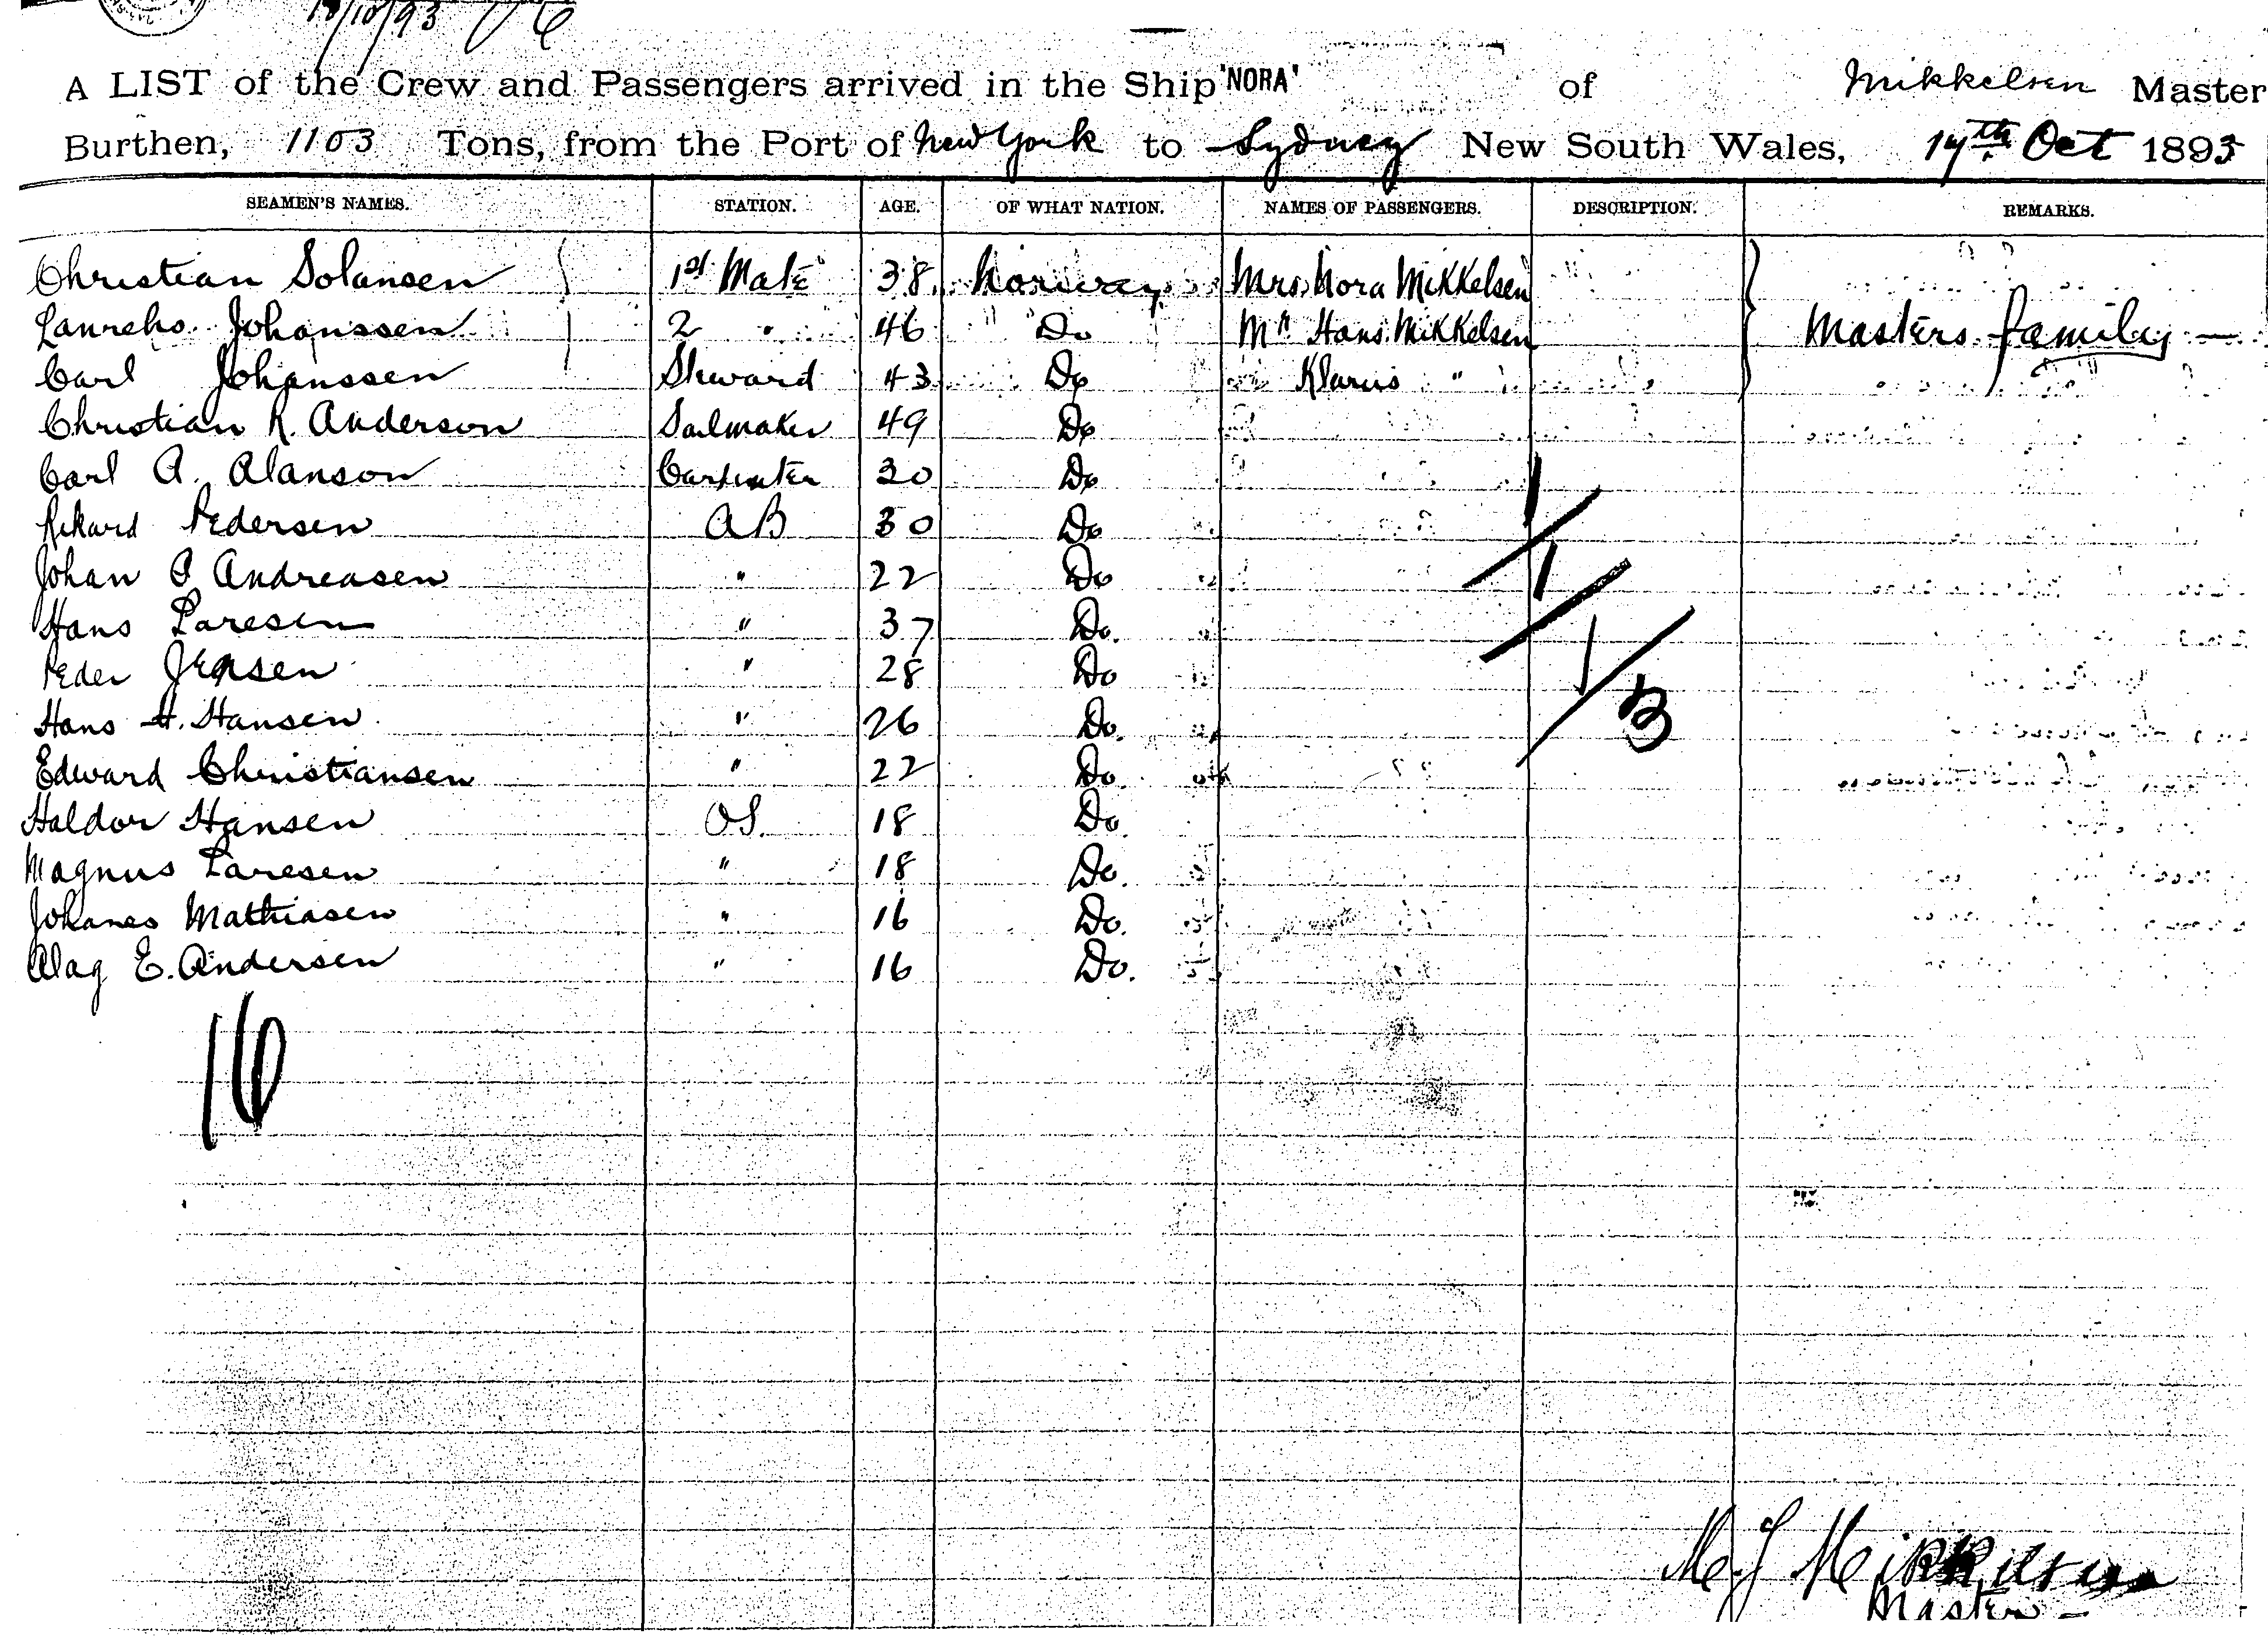 18/10/93
A LIST of the Crew and Passengers arrived in the Ship 'NORA' of Mikkelsen Master
Burthen, 1103 Tons, from the Port of New York to Sydney New South Wales, 17th Oct 1893
SEAMEN'S NAMES. STATION. AGE. OF WHAT NATION. NAMES OF PASSENGERS. DESCRIPTION. REMARKS.
Christian Solansen 1st Mate 38 Norway Mrs. Nora Mikkelsen
Laurehs Johanssen 2 " 46 Do Mr Hans Mikkelsen Masters family —
Carl Johanssen Steward 43 Do Klarus "
Christian R. Anderson Sailmaker 49 Do
Carl A. Alanson Carpenter 30 Do
Rikard Pedersen AB 30 Do
Johan P Andreasen " 22 Do
Hans Laresen " 37 Do.
Peder Jensen " 28 Do
Hans H. Hansen " 26 Do.
Edward Christiansen " 22 Do.
Haldor Hansen OS. 18 Do.
Magnus Laresen " 18 Do.
Johanes Mathiasen " 16 Do.
Alag E. Andersen " 16 Do.
1/1/1/3
16
M J Mikkelsen
Master —